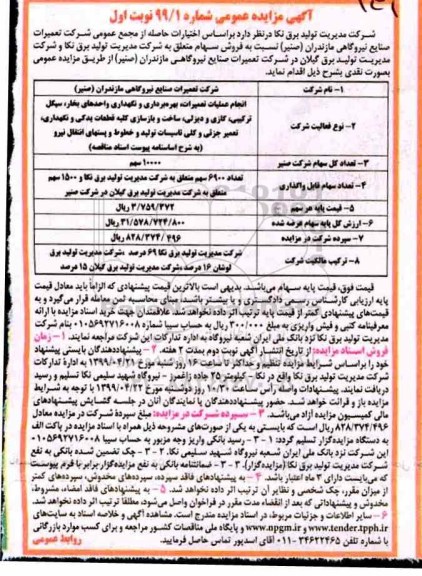 آگهی مزایده عمومی شماره ۹۹/۱ نوبت اول
شرکت مدیریت تولید برق نکا درنظر دارد براساس اختیارات حاصله از مجمع عمومی شرکت تعمیرات
صنایع نیروگاهی مازندران (صنیر) نسبت به فروش سهام متعلق به شرکت مدیریت تولید برق نکا و شرکت
مدیریت تولید برق گیلان در شرکت تعمیرات صنایع نیروگاهی مازندران (صنیر) از طریق مزایده عمومی
بصورت نقدی بشرح ذیل اقدام نماید.
۱- نام شرکت
شرکت تعمیرات صنایع نیروگاهی مازندران (صنیر)
۲- نوع فعالیت شرکت
انجام عملیات تعمیرات، بهره‌برداری و نگهداری واحدهای بخار، سیکل
ترکیبی، گازی و دیزلی، ساخت و بازسازی کلیه قطعات یدکی و نگهداری،
تعمیر جزئی و کلی تاسیسات تولید و خطوط و پستهای انتقال نیرو
(به شرح اساسنامه پیوست اسناد مناقصه)
۳- تعداد کل سهام شرکت صنیر
۱۰۰۰۰ سهم
۴- تعداد سهام قابل واگذاری
تعداد ۶۹۰۰ سهم متعلق به شرکت مدیریت تولید برق نکا و ۱۵۰۰ سهم
متعلق به شرکت مدیریت تولید برق گیلان در شرکت صنیر
۵- قیمت پایه هر سهم
۳/۷۵۹/۳۷۲ ریال
۶- ارزش کل پایه سهام عرضه شده
۳۱/۵۷۸/۷۲۴/۸۰۰ ریال
۷- سپرده شرکت در مزایده
۸۲۸/۳۷۴/۴۹۶ ریال
۸- ترکیب مالکیت شرکت
شرکت مدیریت تولید برق نکا ۶۹ درصد ،شرکت مدیریت تولید برق
لوشان ۱۶ درصد ،شرکت مدیریت تولید برق گیلان ۱۵ درصد
قیمت فوق، قیمت پایه سهام می‌باشد. بدیهی است بالاترین قیمت پیشنهادی که الزاماً باید معادل قیمت
پایه ارزیابی کارشناس رسمی دادگستری و یا بیشتر باشد، مبنای محاسبه ثمن معامله قرار می‌گیرد و به
قیمت‌های پیشنهادی کمتر از قیمت پایه ترتیب اثر داده نخواهد شد. علاقمندان جهت خرید اسناد مزایده با ارائه
معرفینامه کتبی و فیش واریزی به مبلغ ۳۰۰/۰۰۰ ریال به حساب سیبا شماره ۰۱۰۵۶۹۲۷۱۶۰۰۸ بنام شرکت
مدیریت تولید برق نکا نزد بانک ملی ایران شعبه نیروگاه به اداره تدارکات این شرکت مراجعه نمایند. ۱- زمان
فروش اسناد مزایده: از تاریخ انتشار آگهی نوبت دوم بمدت ۲ هفته. ۲- پیشنهاددهندگان بایستی پیشنهاد
خود را براساس شرایط مزایده تنظیم و حداکثر تا ساعت ۱۶ روز شنبه مورخ ۱۳۹۹/۰۴/۲۱ به اداره تدارکات
شرکت مدیریت تولید برق نکا واقع در نکا - کیلومتر ۲۵ جاده زاغمرز - نیروگاه شهید سلیمی نکا تسلیم و رسید
دریافت نمایند. پیشنهادات واصله رأس ساعت ۱۰/۳۰ روز دوشنبه مورخ ۱۳۹۹/۰۴/۲۳ با توجه به شرایط
مزایده باز و قرائت خواهد شد. حضور پیشنهاددهندگان یا نمایندگان آنان در جلسه گشایش پیشنهادهای
مالی کمیسیون مزایده آزاد می‌باشد. ۳- سپرده شرکت در مزایده: مبلغ سپرده شرکت در مزایده معادل
۸۲۸/۳۷۴/۴۹۶ ریال است که بایستی به یکی از صورت‌های مشروحه ذیل همراه با اسناد مزایده در پاکت الف
به دستگاه مزایده‌گزار تسلیم گردد: ۱-۳- رسید بانکی واریز وجه مزبور به حساب سیبا ۰۱۰۵۶۹۲۷۱۶۰۰۸
این شرکت نزد بانک ملی ایران شعبه نیروگاه شهید سلیمی نکا. ۲-۳- چک تضمین شده بانکی به نفع
شرکت مدیریت تولید برق نکا (مزایده‌گزار). ۳-۳- ضمانتنامه بانکی به نفع مزایده‌گزار برابر با فرم پیوست
که می‌بایست دارای ۳ ماه اعتبار باشد. ۴- به پیشنهادهای فاقد سپرده، سپرده‌های مخدوش، سپرده‌های کمتر
از میزان مقرر، چک شخصی و نظایر آن ترتیب اثر داده نخواهد شد. ۵- به پیشنهادهای فاقد امضاء، مشروط،
مخدوش و پیشنهاداتی که بعد از انقضاء مدت مقرر در فراخوان واصل می‌شود، مطلقا ترتیب اثر داده نخواهد شد.
۶- سایر اطلاعات و جزئیات مربوط، در اسناد مزایده مندرج است. مشاهده آگهی و خلاصه اسناد به سایت‌های
www.tender.tpph.ir و www.npgm.ir و پایگاه ملی مناقصات کشور مراجعه و برای کسب موارد بازرگانی
با شماره تلفن ۳۴۶۲۲۴۶۵-۰۱۱ آقای اسدپور تماس حاصل فرمایید.
روابط عمومی